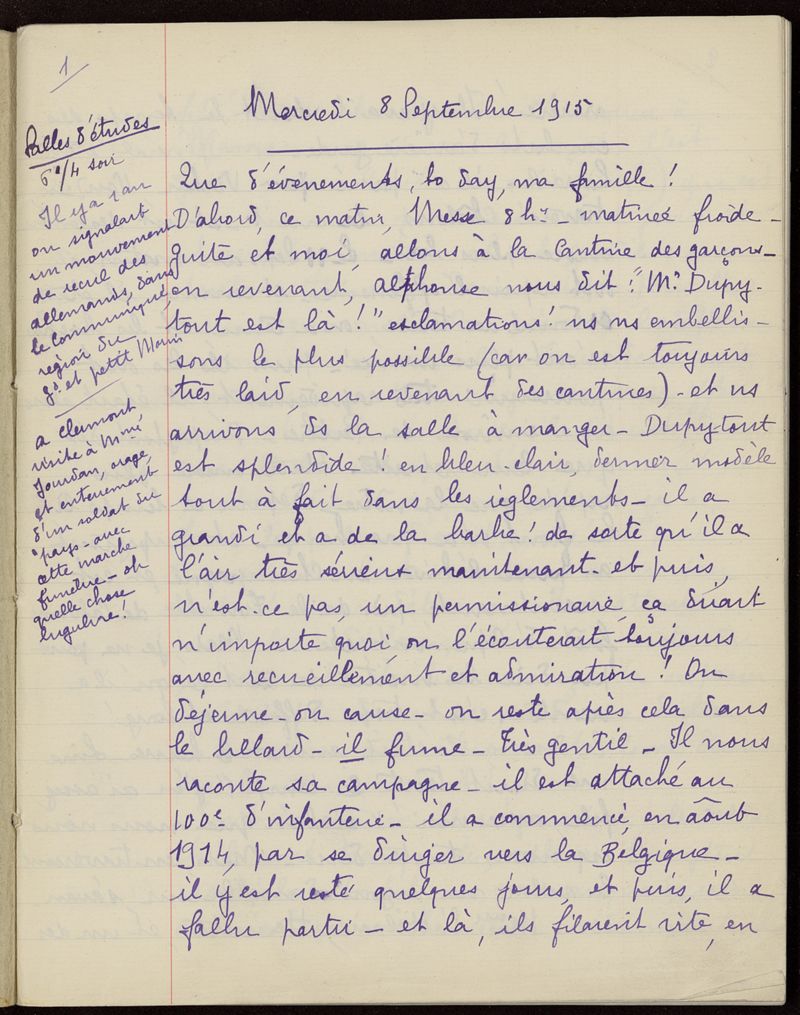 1
Mercredi 8 Septembre 1915
Salles d'études
6h 1/4 soir
Il y a 1 an
on signalait
un mouvement
de recul des
allemands, dans
le communiqué,
région du
Gd et petit Morin
a Clermont,
visite à Mme
Jourdan, orage,
et enterrement
d'un soldat du
"pays - avec
cette marche
funèbre - oh
quelle chose
lugubre!
Que d'évènements, to day, ma famille !
D'abord, ce matin, Messe 8 hres - matinée froide -
Guite et moi, allons à la Cantine des garçons -
en revenant, alphonse nous dit : "Mr Dupy-
tout est là !" esclamations ! ns ns embellis-
sons le plus possible (car on est toujours
très laid, en revenant des cantines) - et ns
arrivons ds la salle à manger - Dupytout
est splendide ! en bleu-clair, dernier modèle
tout à fait dans les règlements - il a
grandi et a de la barbe ! de sorte qu'il a
l'air très sérieux maintenant - et puis,
n'est-ce pas, un permissionaire, ça dirait
n'importe quoi, on l'écouterait toujours
avec recueillement et admiration ! On
déjeune - on cause - on reste après cela dans
le billard - il fume - Très gentil - Il nous
raconte sa campagne - il est attaché au
100e d'infanterie - il a commencé, en août
1914, par se diriger vers la Belgique -
il y est resté quelques jours, et puis, il a
fallu partir - et là, ils filaient vite, en